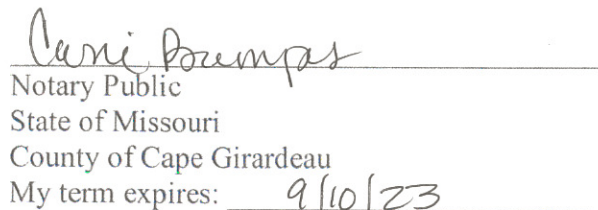 Notary Public
State of Missouri
County of Cape Girardeau
My term expires: 9/10/23